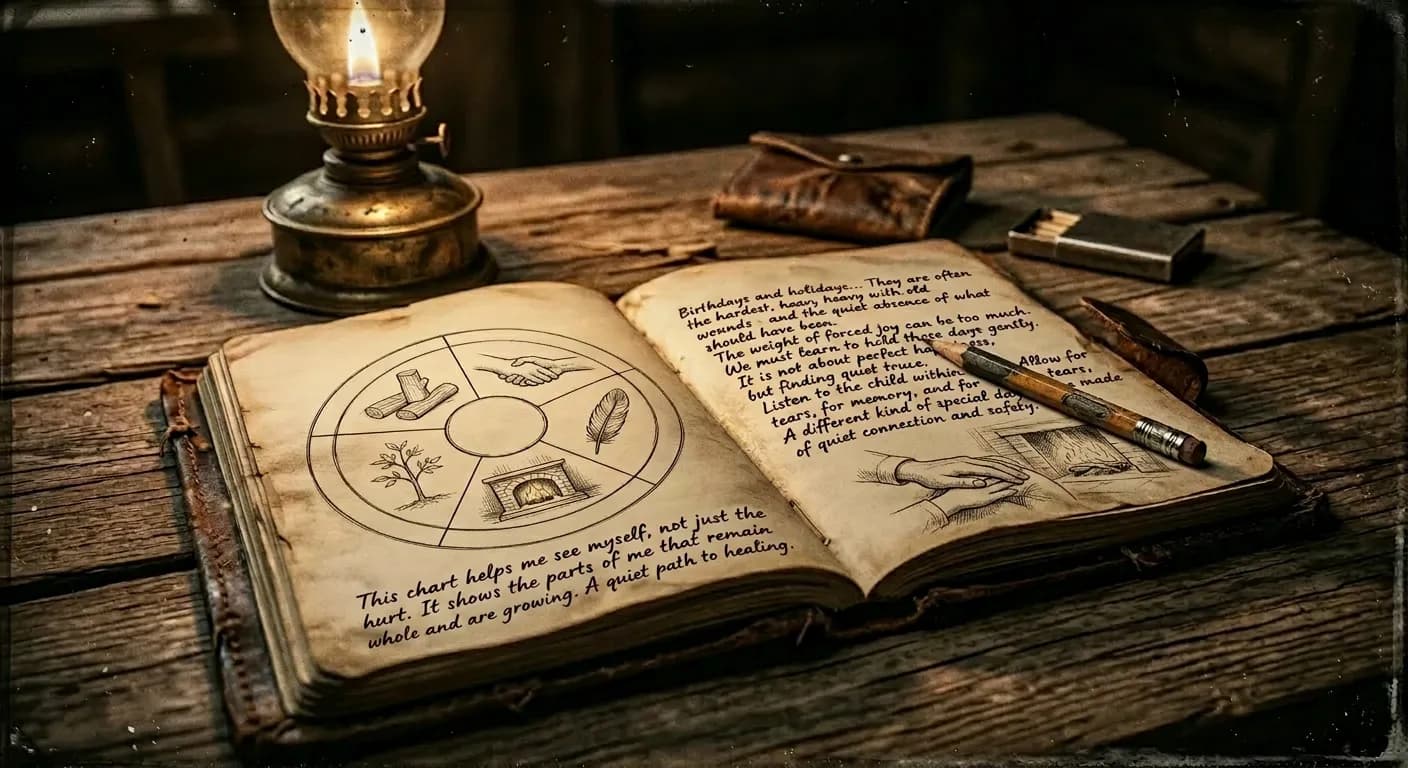 This chart helps me see myself, not just the
hurt. It shows the parts of me that remain
whole and are growing. A quiet path to healing.
Birthdays and holidaye... They are often
the hardest, heavy, heavy with old
wounds - and the quiet absence of what
should have been.
The weight of forced joy can be too much.
We must learn to hold those days gently.
It is not about perfect
but finding quiet truce,
Listen to the child within Allow for
tears, for memory, and for tears,
A different kind of special made
of quiet connection and safety.